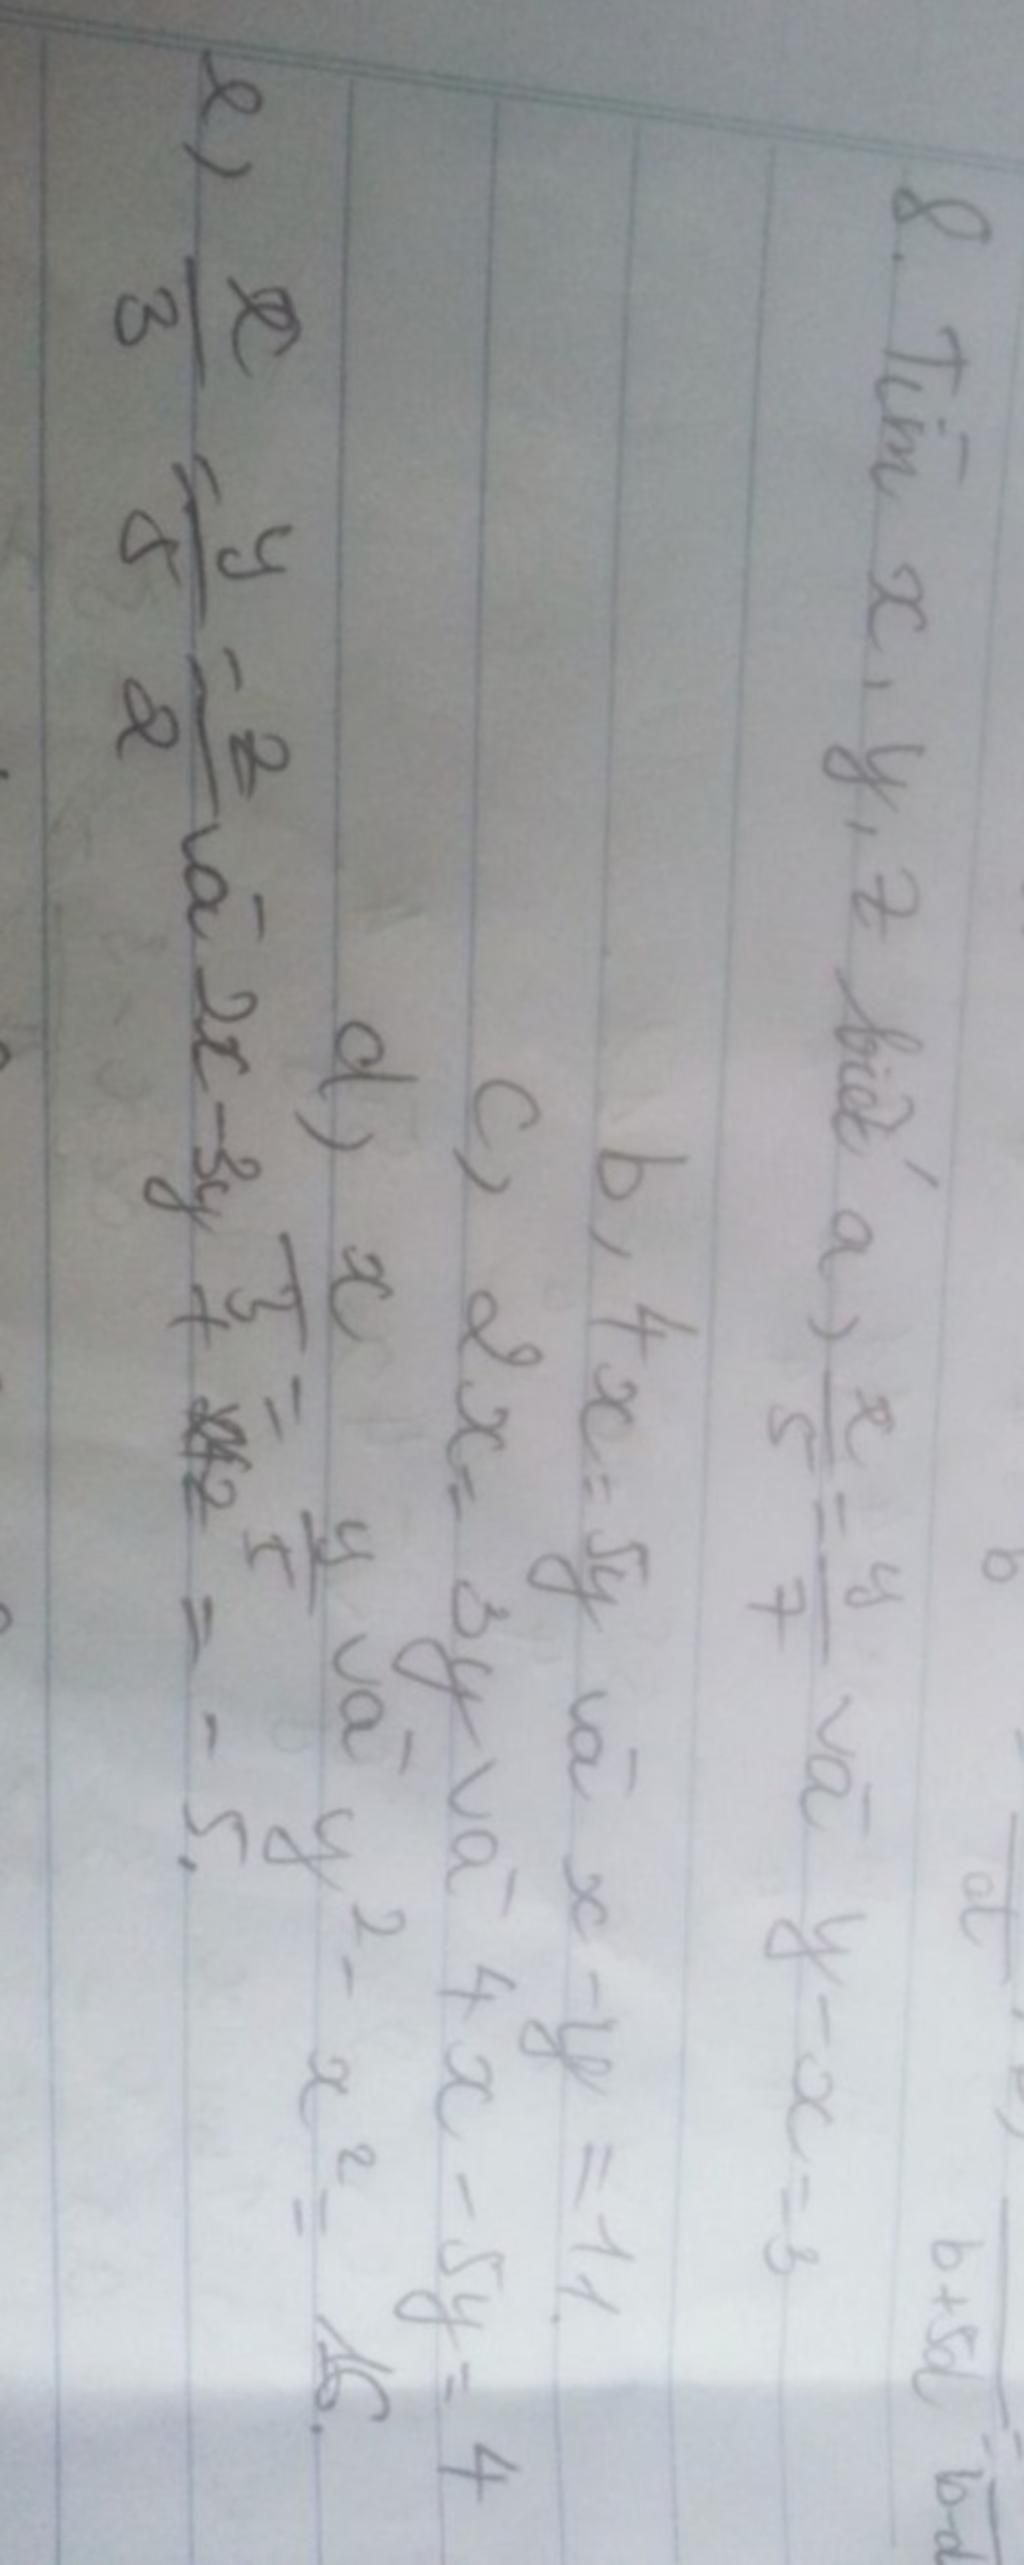 b
d
b+5d
b-d
8. Tìm x, y, z biết a) x/5 = y/7 và y - x = 3
b, 4x = 5y và x - y = 11.
c, 2x = 3y và 4x - 5y = 4
d) x/3 = y/5 và y² - x² = 16.
e, x/3 = y/5 = z/2 và 2x - 3y + z = - 5.